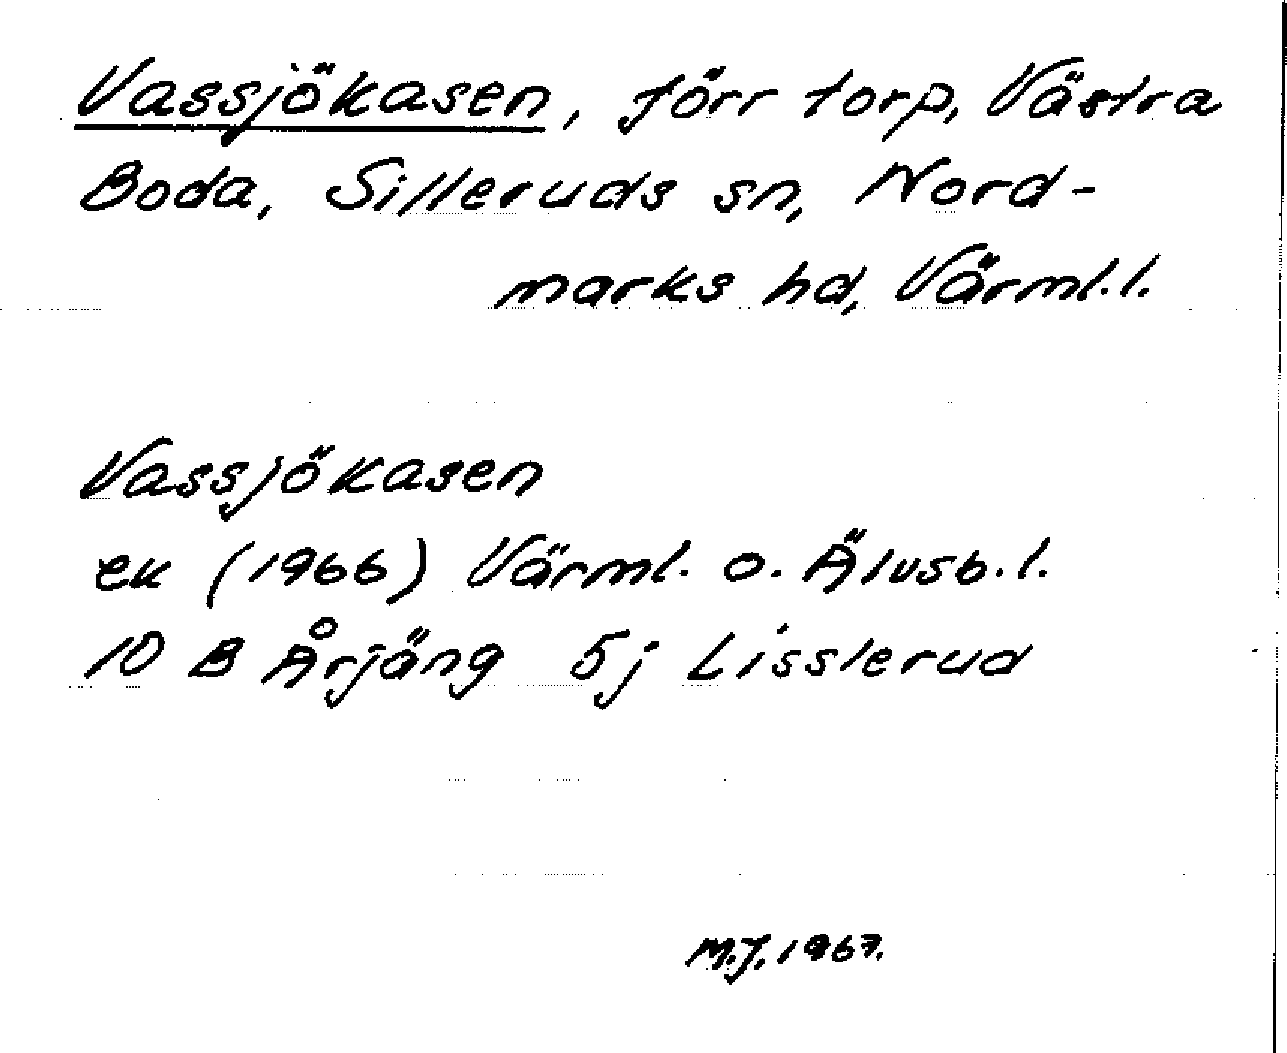 Vassjökasen, förr torp, Västra
Boda, Silleruds sn, Nord-
marks hd, Värml.l.
Vassjökasen
ek (1966) Värml. o. Älvsb.l.
10 B Årjäng 5j Lisslerud
M.J. 1967.